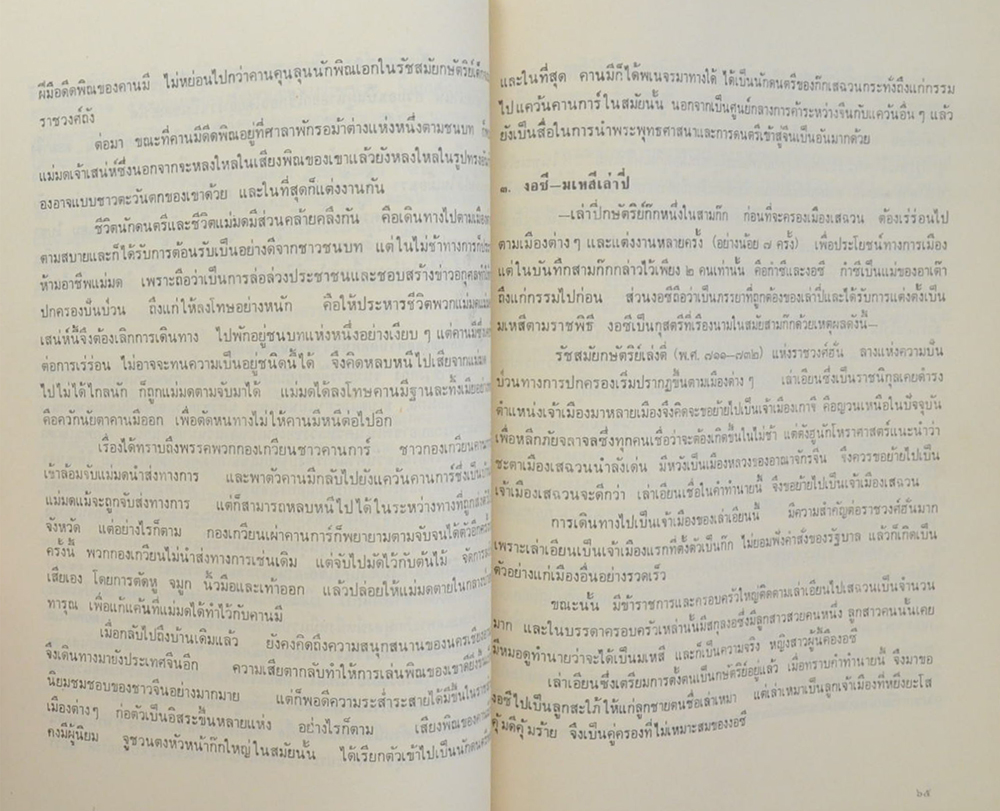 ฝีมือดีดพิณของคานมี ไม่หย่อนไปกว่าคานคุนลุนนักพิณเอกในรัชสมัยกษัตริย์เต็ก
ราชวงศ์ถัง
ต่อมา ขณะที่คานมีดีดพิณอยู่ที่ศาลาพักรอม้าต่างแห่งหนึ่งตามชนบท
แม่มดเจ้าเสน่ห์ซึ่งนอกจากจะหลงใหลในเสียงพิณของเขาแล้วยังหลงใหลในรูปทรง
องอาจแบบชาวตะวันตกของเขาด้วย และในที่สุดก็แต่งงานกัน
ชีวิตนักดนตรีและชีวิตแม่มดมีส่วนคล้ายคลึงกัน คือเดินทางไปตามเมือง
ตามสบายและก็ได้รับการต้อนรับเป็นอย่างดีจากชาวชนบท แต่ในไม่ช้าทางการก็
ห้ามอาชีพแม่มด เพราะถือว่าเป็นการล่อลวงประชาชนและชอบสร้างข่าวอกุศล
ปกครองปั่นป่วน ถึงแก่ให้ลงโทษอย่างหนัก คือให้ประหารชีวิตพวกแม่มด
เสน่ห์นี้จึงต้องเลิกการเดินทาง ไปพักอยู่ชนบทแห่งหนึ่งอย่างเงียบ ๆ แต่คานมี
ต่อการเร่ร่อน ไม่อาจจะทนความเป็นอยู่ชนิดนี้ได้ จึงคิดหลบหนีไปเสียจาก
ไปไม่ได้ไกลนัก ก็ถูกแม่มดตามจับมาได้ แม่มดได้ลงโทษคานมีฐานละทิ้งเมีย
คือควักนัยตาคานมีออก เพื่อตัดหนทางไม่ให้คานมีหนีต่อไปอีก
เรื่องได้ทราบถึงพรรคพวกกองเกวียนชาวคานการ์ ชาวกองเกวียน
เข้าล้อมจับแม่มดนำส่งทางการ และพาตัวคานมีกลับไปยังแคว้นคานการ์ซึ่งเป็น
แม่มดแม้จะถูกจับส่งทางการ แต่ก็สามารถหลบหนีไปได้ในระหว่างทางที่ถูกส่ง
จังหวัด แต่อย่างไรก็ตาม กองเกวียนเผ่าคานการ์ก็พยายามตามจับจนได้ตัวอีก
ครั้งนี้ พวกกองเกวียนไม่นำส่งทางการเช่นเดิม แต่จับไปมัดไว้กับต้นไม้ จัดการ
เสียเอง โดยการตัดหู จมูก นิ้วมือและเท้าออก แล้วปล่อยให้แม่มดตายในกลาง
ทารุณ เพื่อแก้แค้นที่แม่มดได้ทำไว้กับคานมี
เมื่อกลับไปถึงบ้านเดิมแล้ว ยังคงคิดถึงความสนุกสนานของนคร
จึงเดินทางมายังประเทศจีนอีก ความเสียตากลับทำให้การเล่นพิณของเขาดียิ่งขึ้น
นิยมชมชอบของชาวจีนอย่างมากมาย แต่ก็พอดีความระส่ำระสายได้มีขึ้นใน
เมืองต่างๆ ก่อตัวเป็นอิสระขึ้นหลายแห่ง อย่างไรก็ตาม เสียงพิณของคาน
คงมีผู้นิยม จูชวนตงหัวหน้าก๊กใหญ่ในสมัยนั้น ได้เรียกตัวเข้าไปเป็นนักดนตรี
และในที่สุด คานมีก็ได้พเนจรมาทางใต้ ได้เป็นนักดนตรีของก๊กเสฉวนกระทั่งถึงแก่กรรม
ไปแคว้นคานการ์ในสมัยนั้น นอกจากเป็นศูนย์กลางการค้าระหว่างจีนกับแคว้นอื่นๆ แล้ว
ยังเป็นสื่อในการนำพระพุทธศาสนาและการดนตรีเข้าสู่จีนเป็นอันมากด้วย
๓. งอซี–มเหสีเล่าปี่
—เล่าปี่กษัตริย์ก๊กหนึ่งในสามก๊ก ก่อนที่จะครองเมืองเสฉวน ต้องเร่ร่อนไป
ตามเมืองต่างๆ และแต่งงานหลายครั้ง (อย่างน้อย ๗ ครั้ง) เพื่อประโยชน์ทางการเมือง
แต่ในบันทึกสามก๊กกล่าวไว้เพียง ๒ คนเท่านั้น คือกำซีและงอซี กำซีเป็นแม่ของอาเต๊า
ถึงแก่กรรมไปก่อน ส่วนงอซีถือว่าเป็นภรรยาที่ถูกต้องของเล่าปี่และได้รับการแต่งตั้งเป็น
มเหสีตามราชพิธี งอซีเป็นกุสตรีที่เรืองนามในสมัยสามก๊กด้วยเหตุผลดังนี้—
รัชสมัยกษัตริย์เล่งตี่ (พ.ศ. ๗๑๑–๗๓๒) แห่งราชวงศ์ฮั่น ลางแห่งความปั่น
ป่วนทางการปกครองเริ่มปรากฏขึ้นตามเมืองต่างๆ เล่าเอียนซึ่งเป็นราชนิกุลเคยดำรง
ตำแหน่งเจ้าเมืองมาหลายเมืองจึงคิดจะขอย้ายไปเป็นเจ้าเมืองเกาจิ คือญวนเหนือในปัจจุบัน
เพื่อหลีกภัยจลาจลซึ่งทุกคนเชื่อว่าจะต้องเกิดขึ้นในไม่ช้า แต่ตังฮูนักโหราศาสตร์แนะนำว่า
ชะตาเมืองเสฉวนนำลังเด่น มีหวังเป็นเมืองหลวงของอาณาจักรจีน จึงควรขอย้ายไปเป็น
เจ้าเมืองเสฉวนจะดีกว่า เล่าเอียนเชื่อในคำทำนายนี้ จึงขอย้ายไปเป็นเจ้าเมืองเสฉวน
การเดินทางไปเป็นเจ้าเมืองของเล่าเอียนนี้ มีความสำคัญต่อราชวงศ์ฮั่นมาก
เพราะเล่าเอียนเป็นเจ้าเมืองแรกที่ตั้งตัวเป็นก๊ก ไม่ยอมฟังคำสั่งของรัฐบาล แล้วก็เกิดเป็น
ตัวอย่างแก่เมืองอื่นอย่างรวดเร็ว
ขณะนั้น มีข้าราชการและครอบครัวใหญ่คิดตามเล่าเอียนไปเสฉวนเป็นจำนวน
มาก และในบรรดาครอบครัวเหล่านั้นมีสกุลงอซึ่งมีลูกสาวสวยคนหนึ่ง ลูกสาวคนนั้นเคย
มีหมอดูทำนายว่าจะได้เป็นมเหสี และก็เป็นความจริง หญิงสาวผู้นี้คืองอซี
เล่าเอียนซึ่งเตรียมการตั้งตนเป็นกษัตริย์อยู่แล้ว เมื่อทราบคำทำนายนี้ จึงมาขอ
งอซีไปเป็นลูกสะใภ้ ให้แก่ลูกชายตนชื่อเล่าเหมา แต่เล่าเหมาเป็นลูกเจ้าเมืองที่หยิ่งยะโส
คุ้มดีคุ้มร้าย จึงเป็นคู่ครองที่ไม่เหมาะสมของงอซี
๖๕